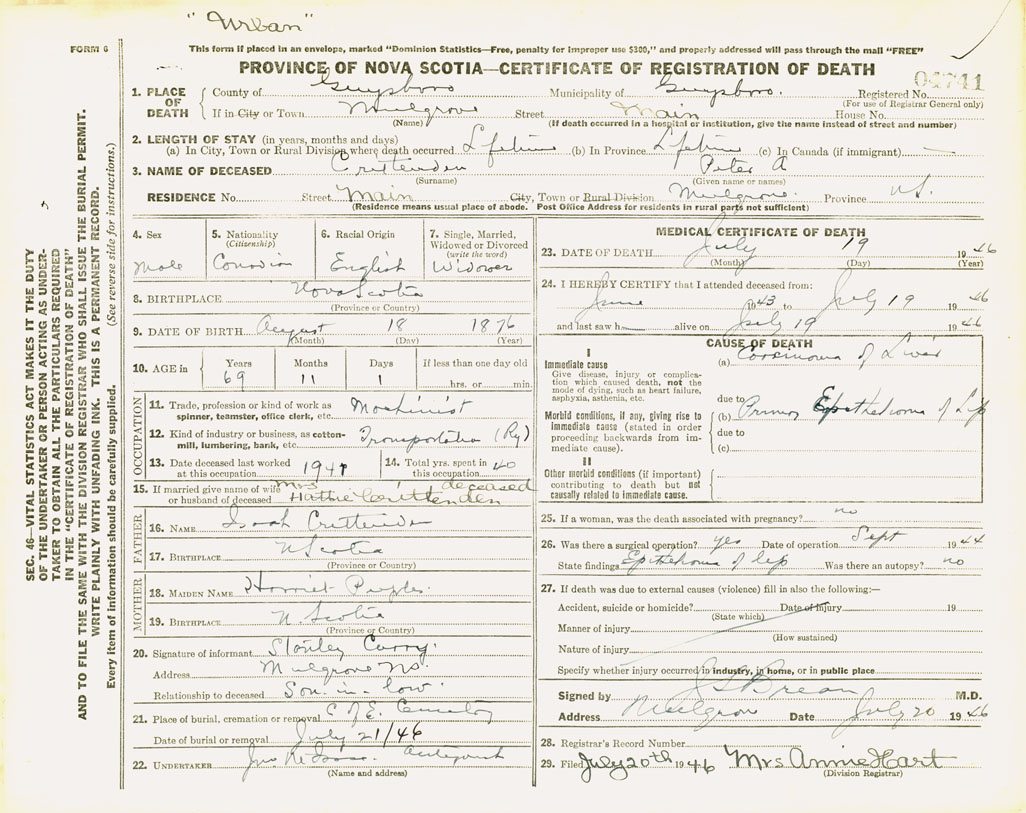 "Urban"
FORM 6
This form if placed in an envelope, marked "Dominion Statistics—Free, penalty for improper use $300," and properly addressed will pass through the mail "FREE"
PROVINCE OF NOVA SCOTIA—CERTIFICATE OF REGISTRATION OF DEATH
04741
1. PLACE OF DEATH { County of Guysboro Municipality of Guysboro. Registered No.
(For use of Registrar General only)
If in City or Town Mulgrave Street Main House No.
(Name) (If death occurred in a hospital or institution, give the name instead of street and number)
2. LENGTH OF STAY (in years, months and days)
(a) In City, Town or Rural Division where death occurred Lifetime (b) In Province Lifetime (c) In Canada (if immigrant) —
3. NAME OF DECEASED Crittenden Peter A
(Surname) (Given name or names)
RESIDENCE No. Street Main City, Town or Rural Division Mulgrave. Province N.S.
(Residence means usual place of abode. Post Office Address for residents in rural parts not sufficient)
SEC. 46—VITAL STATISTICS ACT MAKES IT THE DUTY
OF THE UNDERTAKER OR PERSON ACTING AS UNDER-
TAKER TO OBTAIN ALL THE PARTICULARS REQUIRED
IN THE "CERTIFICATE OF REGISTRATION OF DEATH"
AND TO FILE THE SAME WITH THE DIVISION REGISTRAR WHO SHALL ISSUE THE BURIAL PERMIT.
WRITE PLAINLY WITH UNFADING INK. THIS IS A PERMANENT RECORD.
Every item of information should be carefully supplied. (See reverse side for instructions.)
4. Sex 5. Nationality (Citizenship) 6. Racial Origin 7. Single, Married, Widowed or Divorced (write the word)
Male Canadian English Widower
8. BIRTHPLACE Nova Scotia
(Province or Country)
9. DATE OF BIRTH August 18 1876
(Month) (Day) (Year)
10. AGE in { Years Months Days If less than one day old
69 11 1 hrs. or min.
OCCUPATION
11. Trade, profession or kind of work as spinner, teamster, office clerk, etc. Machinist
12. Kind of industry or business, as cotton-mill, lumbering, bank, etc. Transportation (Ry)
13. Date deceased last worked at this occupation 1941 14. Total yrs. spent in this occupation 40
15. If married give name of wife or husband of deceased Mrs Hattie Crittenden deceased
FATHER
16. NAME Isaah Crittenden
17. BIRTHPLACE N Scotia
(Province or Country)
MOTHER
18. MAIDEN NAME Harriet Peeples.
19. BIRTHPLACE N. Scotia
(Province or Country)
20. Signature of informant Stanley Curry.
Address Mulgrave NS.
Relationship to deceased Son-in-law.
21. Place of burial, cremation or removal C of E. Cemetery
Date of burial or removal July 21/46
22. UNDERTAKER Antigonish
(Name and address)
MEDICAL CERTIFICATE OF DEATH
23. DATE OF DEATH July 19 1946
(Month) (Day) (Year)
24. I HEREBY CERTIFY that I attended deceased from:
June 1943 to July 19 1946
and last saw h alive on July 19 1946
CAUSE OF DEATH
I
Immediate cause
Give disease, injury or complication which caused death, not the mode of dying, such as heart failure, asphyxia, asthenia, etc.
(a) Carcinoma of Liver
due to
Morbid conditions, if any, giving rise to immediate cause (stated in order proceeding backwards from immediate cause).
(b) Primary Epithelioma of Lip
due to
(c)
II
Other morbid conditions (if important) contributing to death but not causally related to immediate cause.
25. If a woman, was the death associated with pregnancy? no
26. Was there a surgical operation? yes Date of operation Sept 1944
State findings Epithelioma of lip Was there an autopsy? no
27. If death was due to external causes (violence) fill in also the following:—
Accident, suicide or homicide? Date of injury 19
(State which)
Manner of injury
(How sustained)
Nature of injury
Specify whether injury occurred in industry, in home, or in public place
Signed by M.D.
Address Mulgrave Date July 20 1946
28. Registrar's Record Number
29. Filed July 20th 1946 Mrs Annie Hart
(Division Registrar)